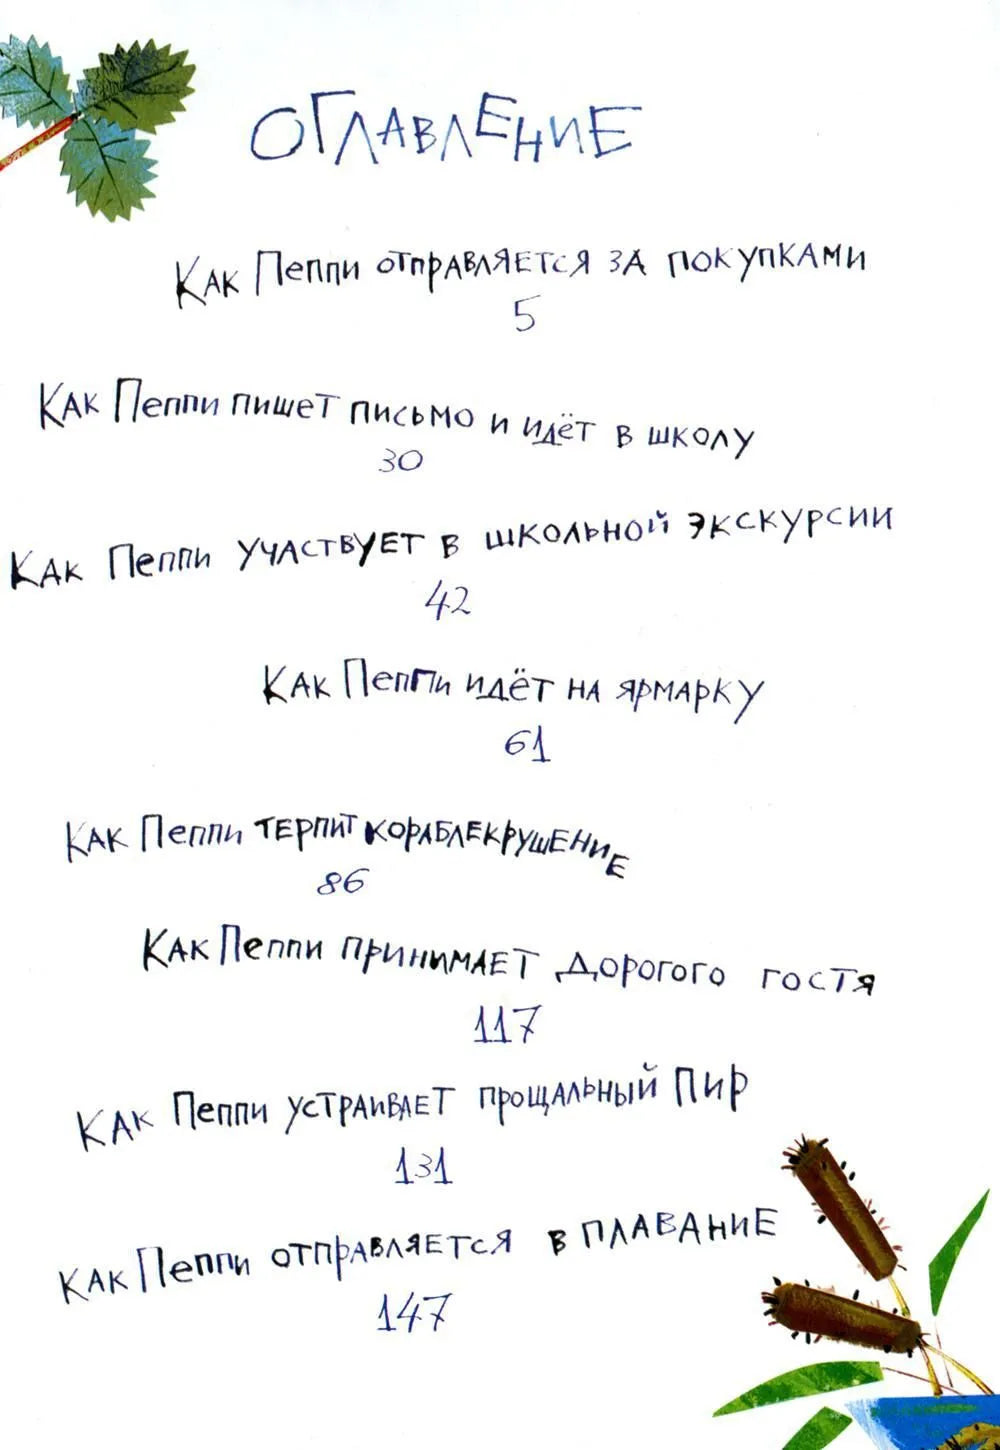 ОГЛАВЛЕНИЕ
Как Пеппи отправляется за покупками
5
Как Пеппи пишет письмо и идёт в школу
30
Как Пеппи участвует в школьной экскурсии
42
Как Пеппи идёт на ярмарку
61
Как Пеппи терпит кораблекрушение
86
Как Пеппи принимает дорогого гостя
117
Как Пеппи устраивает прощальный пир
131
Как Пеппи отправляется в плавание
147